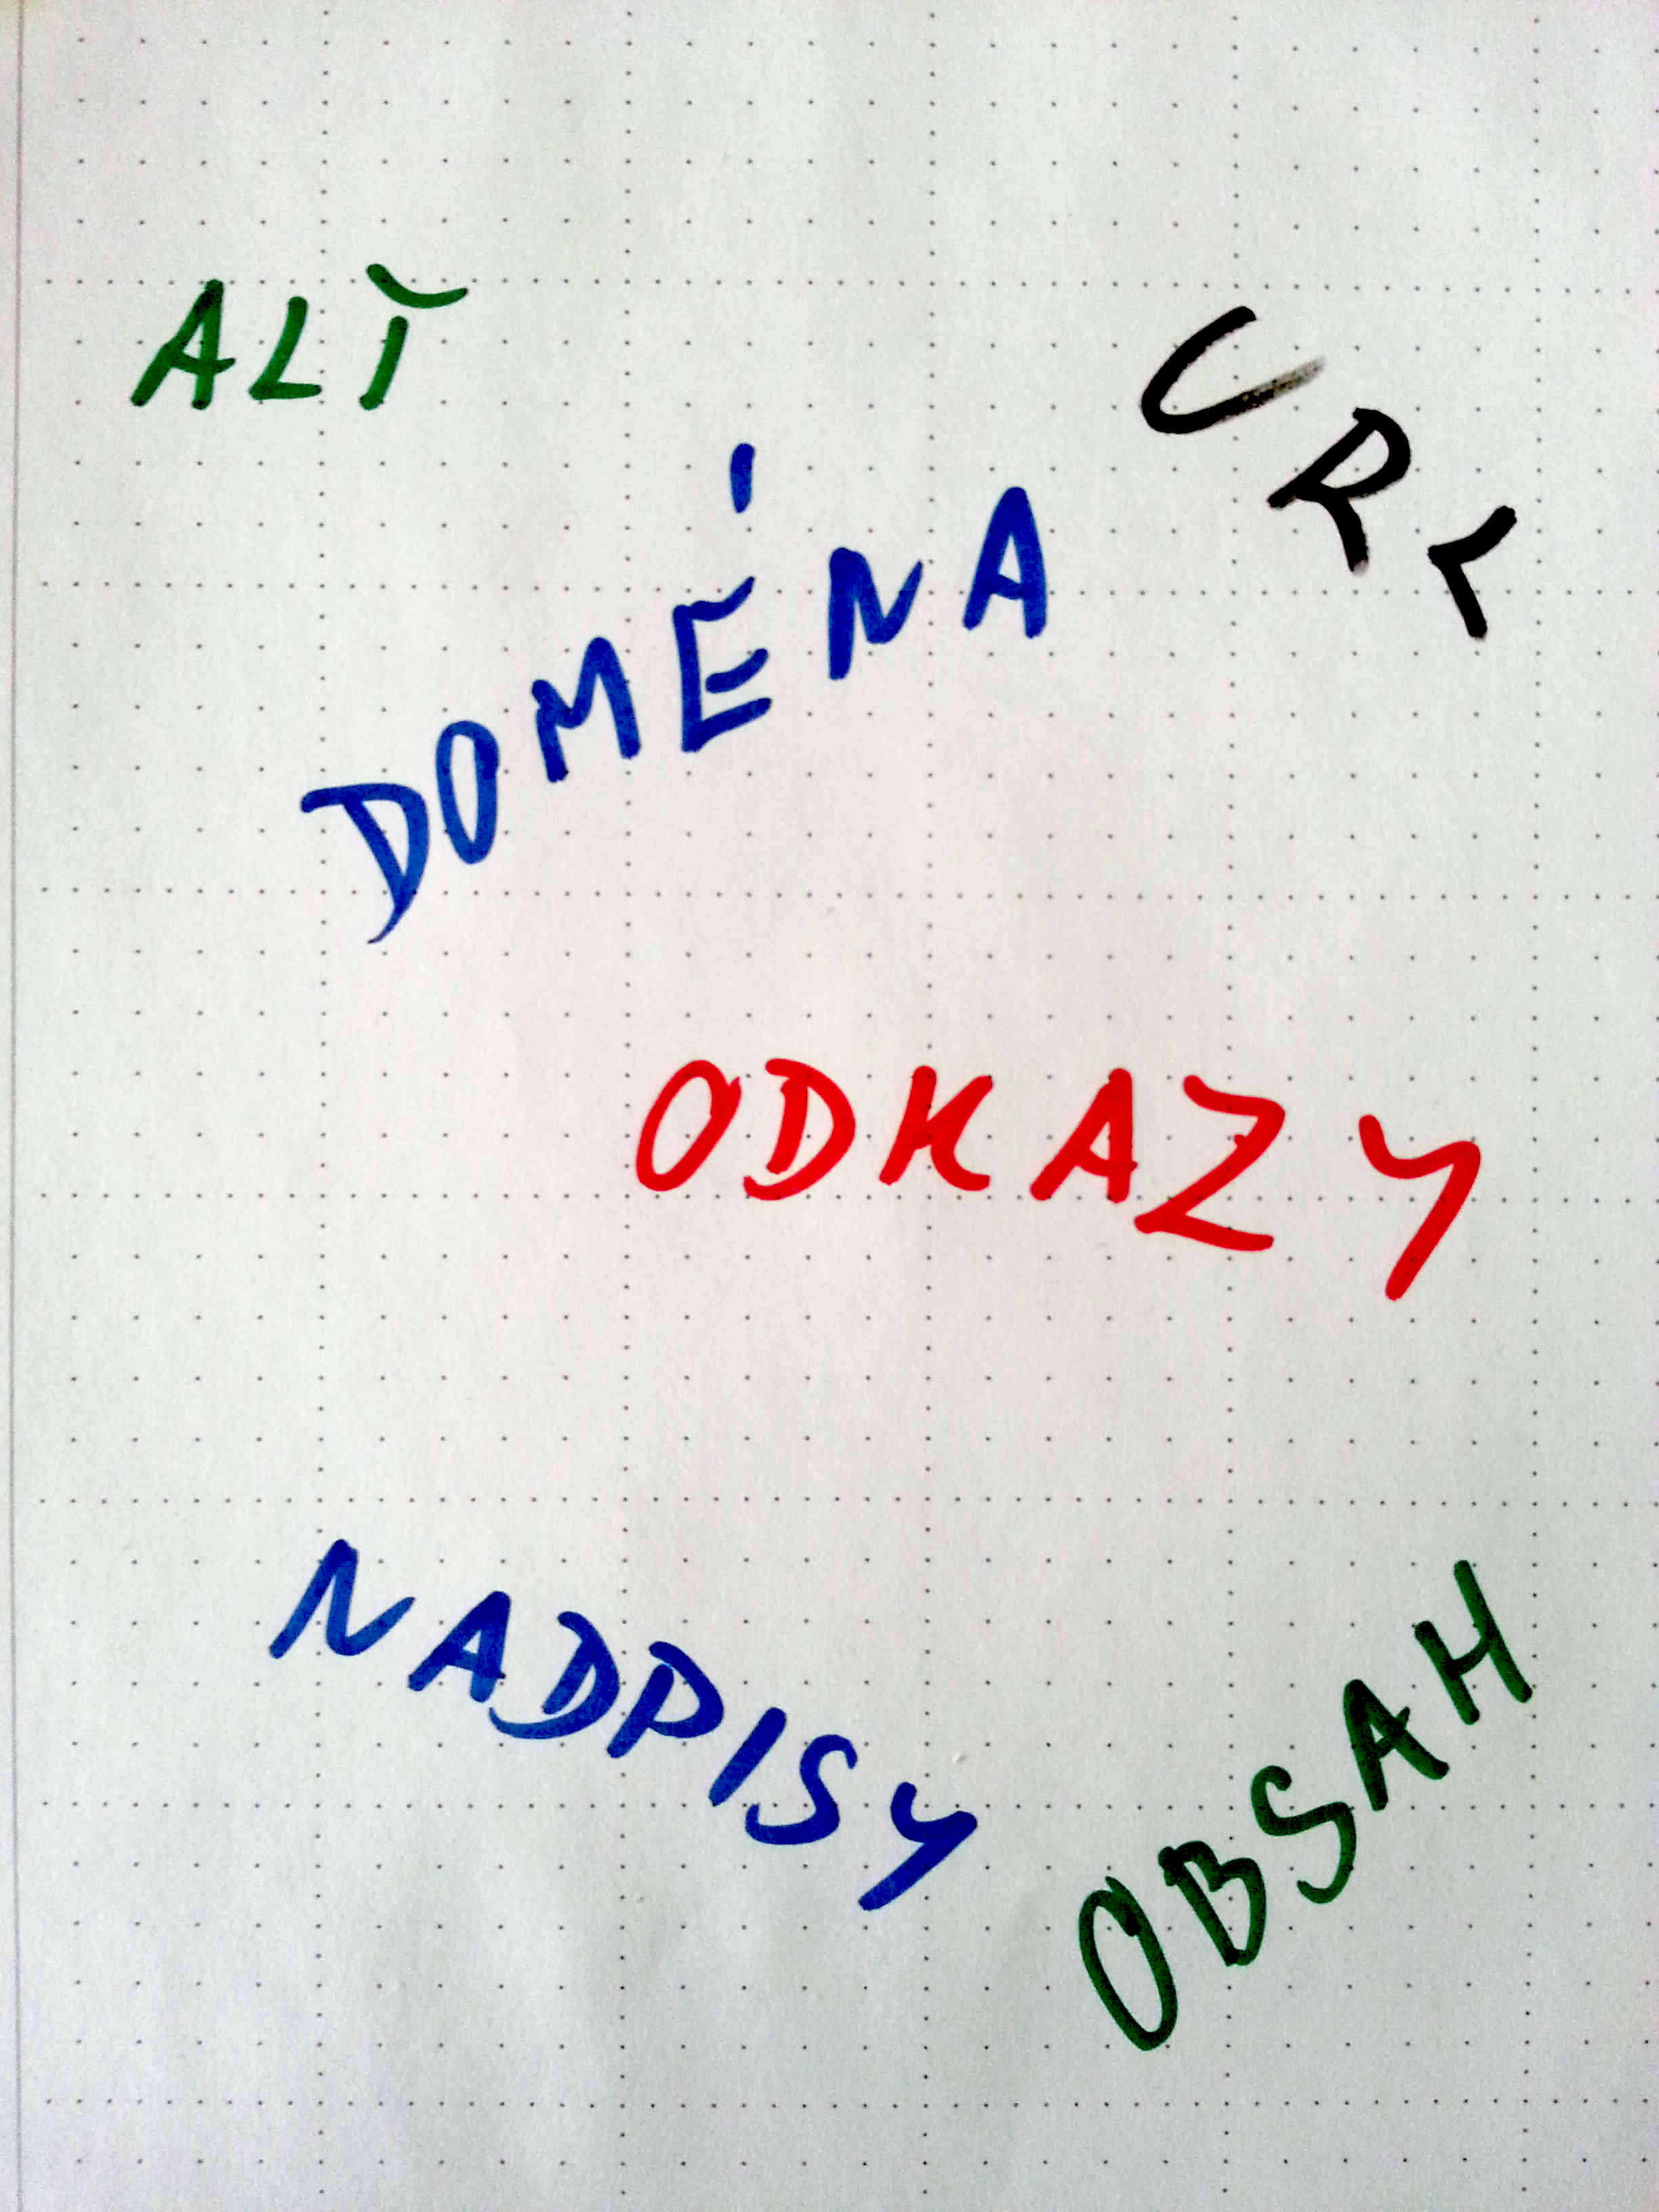 ALT
URL
DOMÉNA
ODKAZY
NADPISY
OBSAH